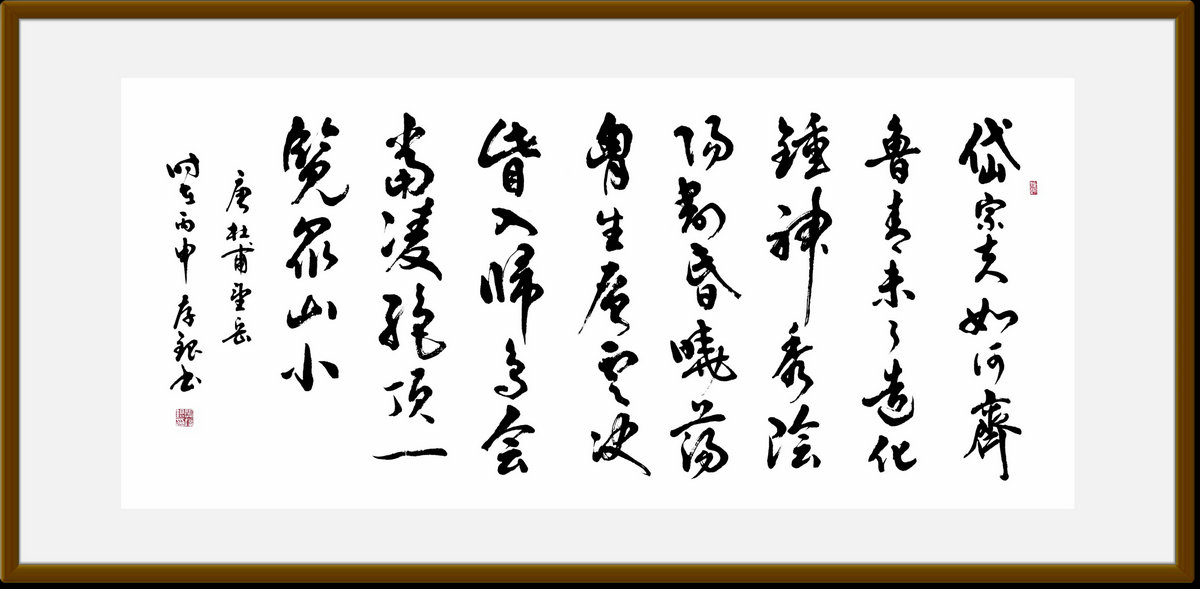 岱宗夫如何齊
魯青未了造化
鍾神秀陰
陽割昏曉蕩
胷生層雲决
眥入歸鳥会
當凌絶頂一
覽眾山小
唐杜甫望岳
時在丙申存书